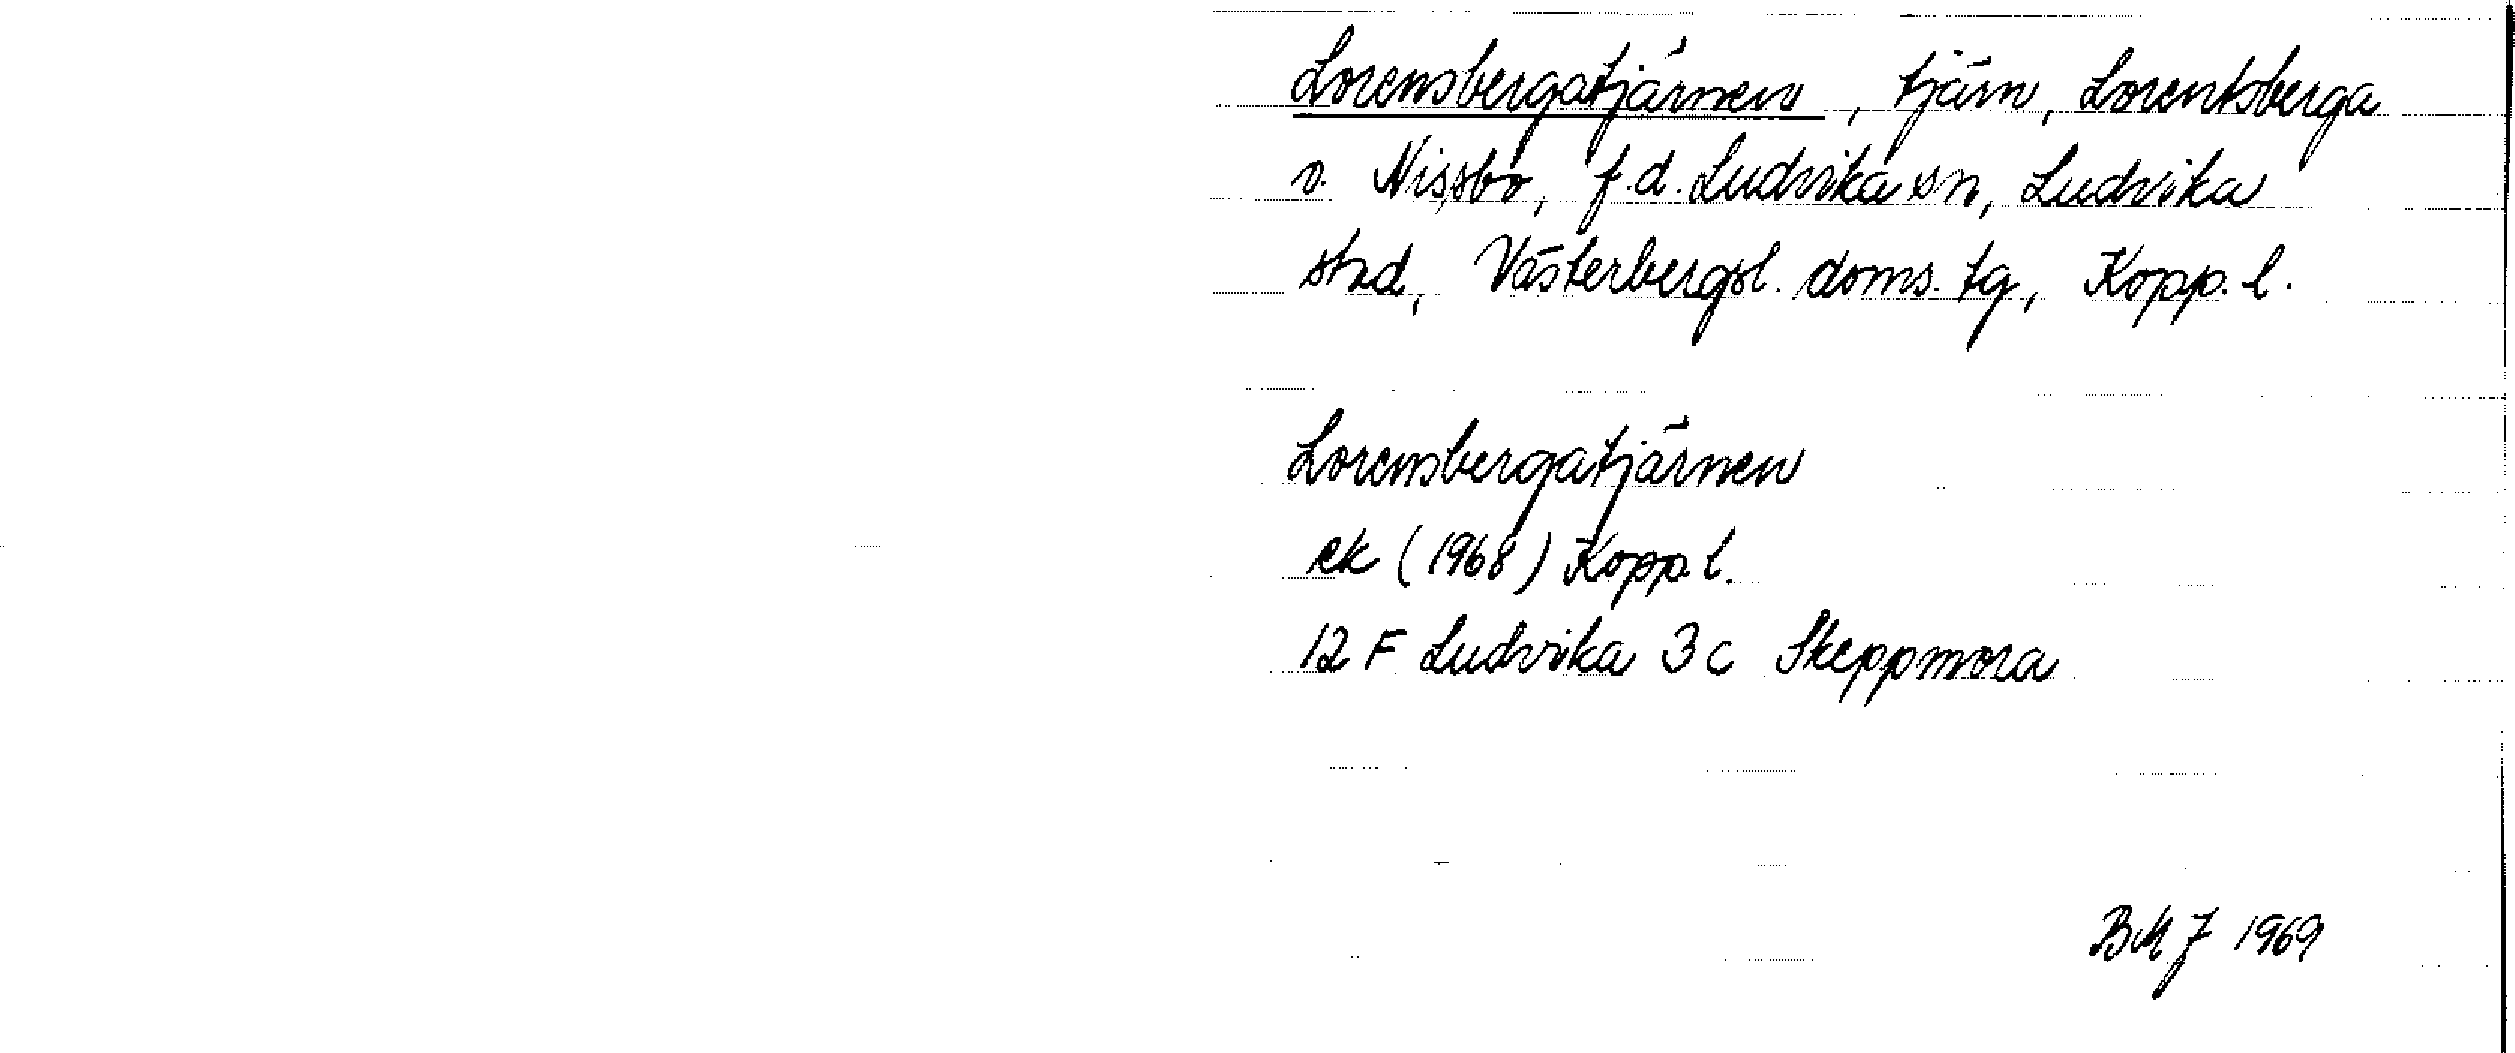 Lorensbergatjärnen, tjärn, Lorentsberga
v. Nissbo, f.d. Ludvika sn, Ludvika
stad, Västerbergsl. doms. tg, Kopp. l.
Lorensbergatjärnen
ek (1968) Kopp. l.
12 F Ludvika 3 c Skeppmora
BMJ 1969